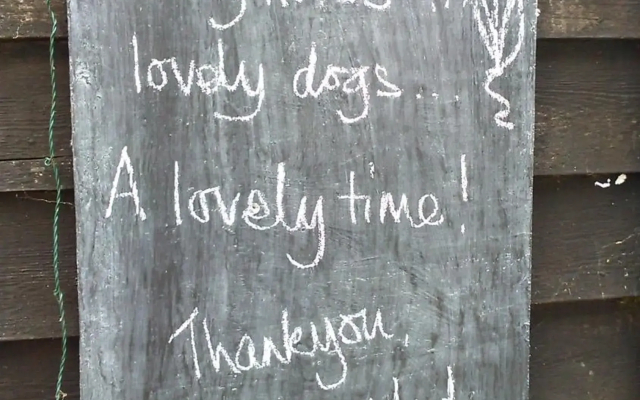 lovely dogs...
A lovely time!
Thankyou,